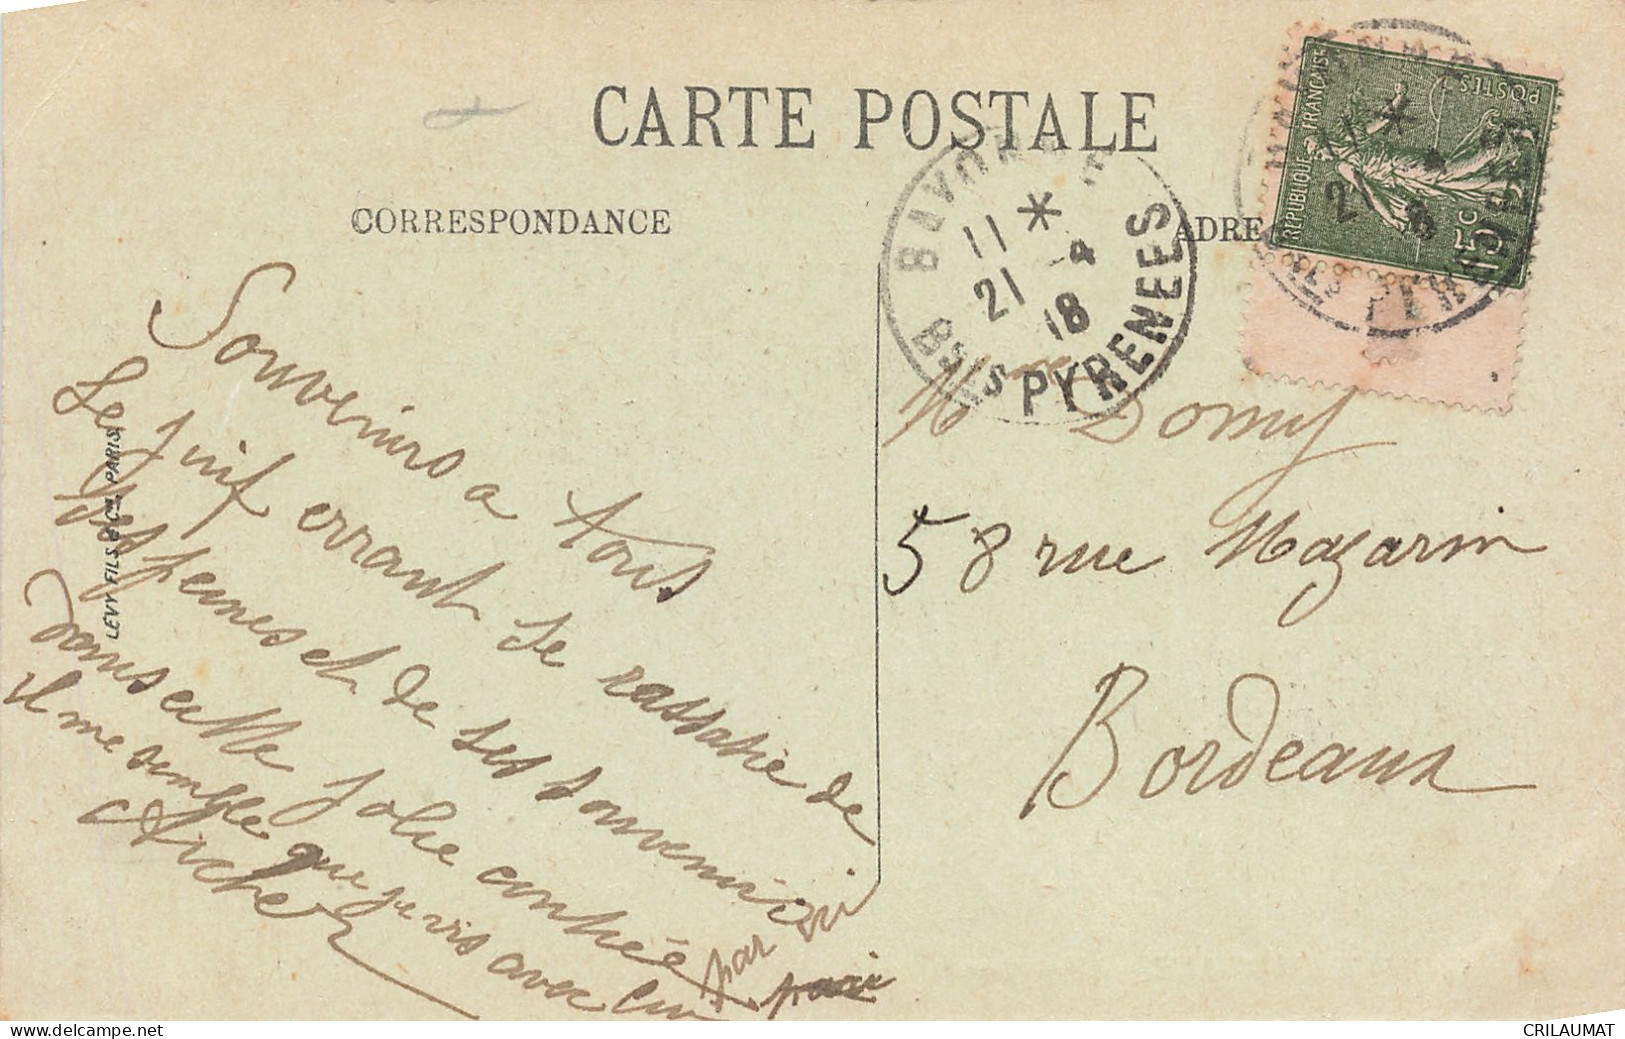 CARTE POSTALE
CORRESPONDANCE
ADRE
RÉPUBLIQUE FRANÇAISE
POSTES
15c
BAYONNE
11 *
21 4
18
BSES PYRENEES
LEVY FILS & Cie, PARIS
Souvenirs a tous
Le juif errant se rassasie de
ses peines et de ses souvenirs
dans cette jolie contrée par ici
il me semble que je vis avec lui
Archer
Mme Domy
58 rue Mazarin
Bordeaux
CRILAUMAT